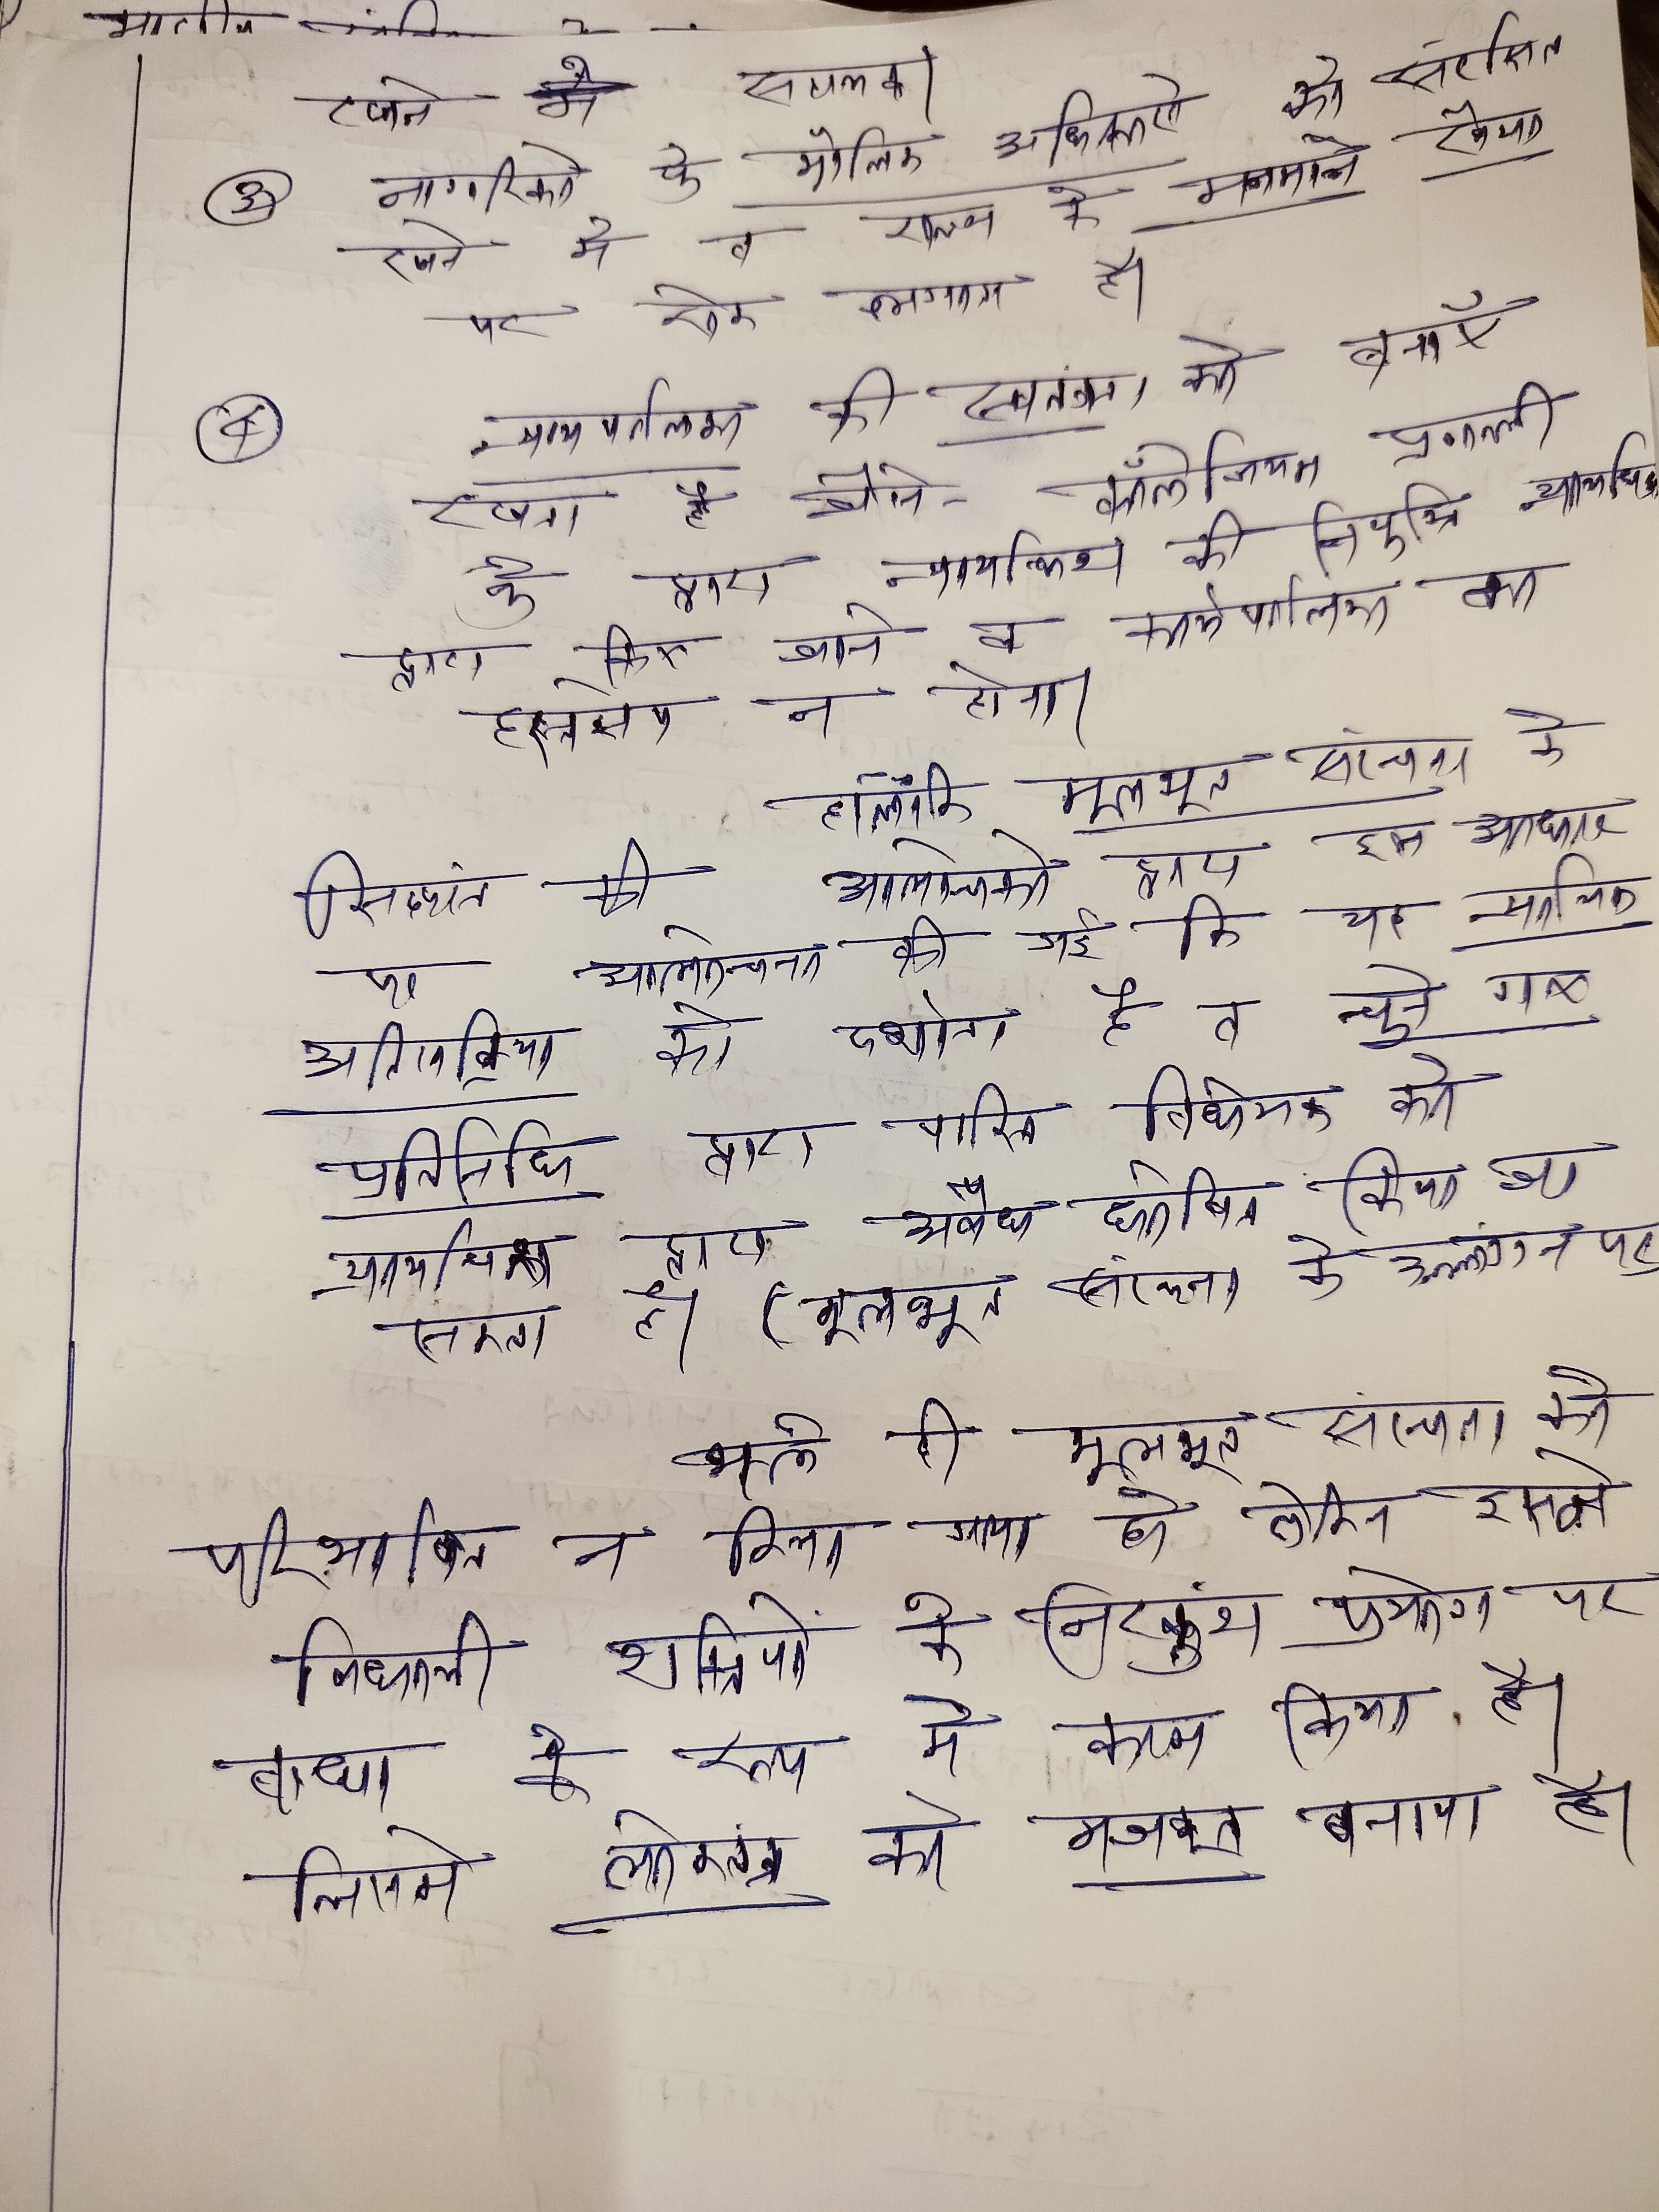 रखने में सहायक।
③ नागरिकों के मौलिक अधिकारों को संरक्षित
रखने में व राज्य के मनमाने रवैया
पर रोक लगाता है।
④ न्यायपालिका की स्वतंत्रता को बनाएँ
रखना है जैसे- कॉलेजियम प्रणाली
के द्वारा न्यायधिश की नियुक्ति न्यायधिश
द्वारा किए जाने व कार्यपालिका का
हस्तक्षेप न होना।
हाँलाँकि मूलभूत संरचना के
सिद्धांत की आलोचको द्वारा इस आधार
पर आलोचना की गई कि यह न्यायिक
अतिसक्रियता को दर्शाता है व चुने गए
प्रतिनिधि द्वारा पारित विधेयक को
न्यायधिश द्वारा अवैध घोषित किया जा
सकता है। (मूलभूत संरचना के उल्लंगन पर
भले ही मूलभूत संरचना को
परिभाषित न किया गया हो लेकिन इसने
विधायी शक्तियों के निरंकुश प्रयोग पर
बाधा के रूप में काम किया है।
जिसने लोकतंत्र को मजबूत बनाया है।